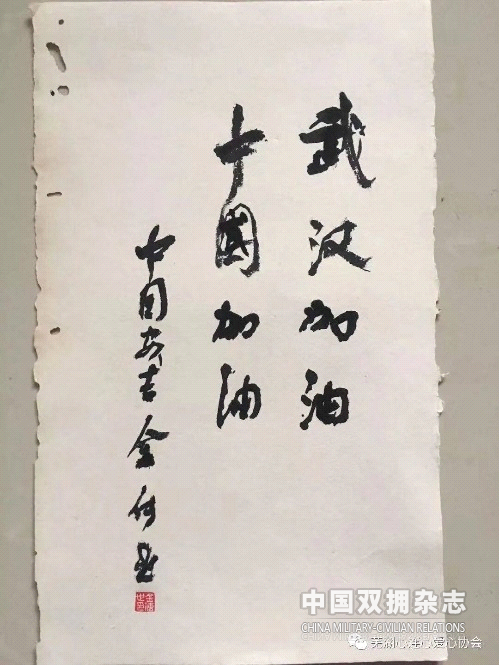 武汉加油
中國加油
中国安吉金何
中国双拥杂志
CHINA MILITARY-CIVILIAN RELATIONS
芜湖心连心爱心协会